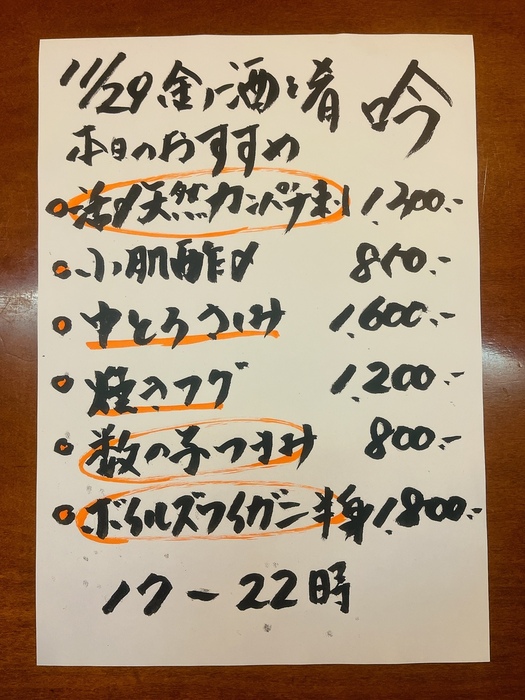 11/29 金 酒と肴 吟
本日のおすすめ
活〆天然カンパチ刺 1,300.-
小肌酢〆 850.-
中とろつまみ 1,600.-
フグ 1,200.-
数の子つまみ 800.-
ボイルズワイガニ半身 1,800.-
17-22時